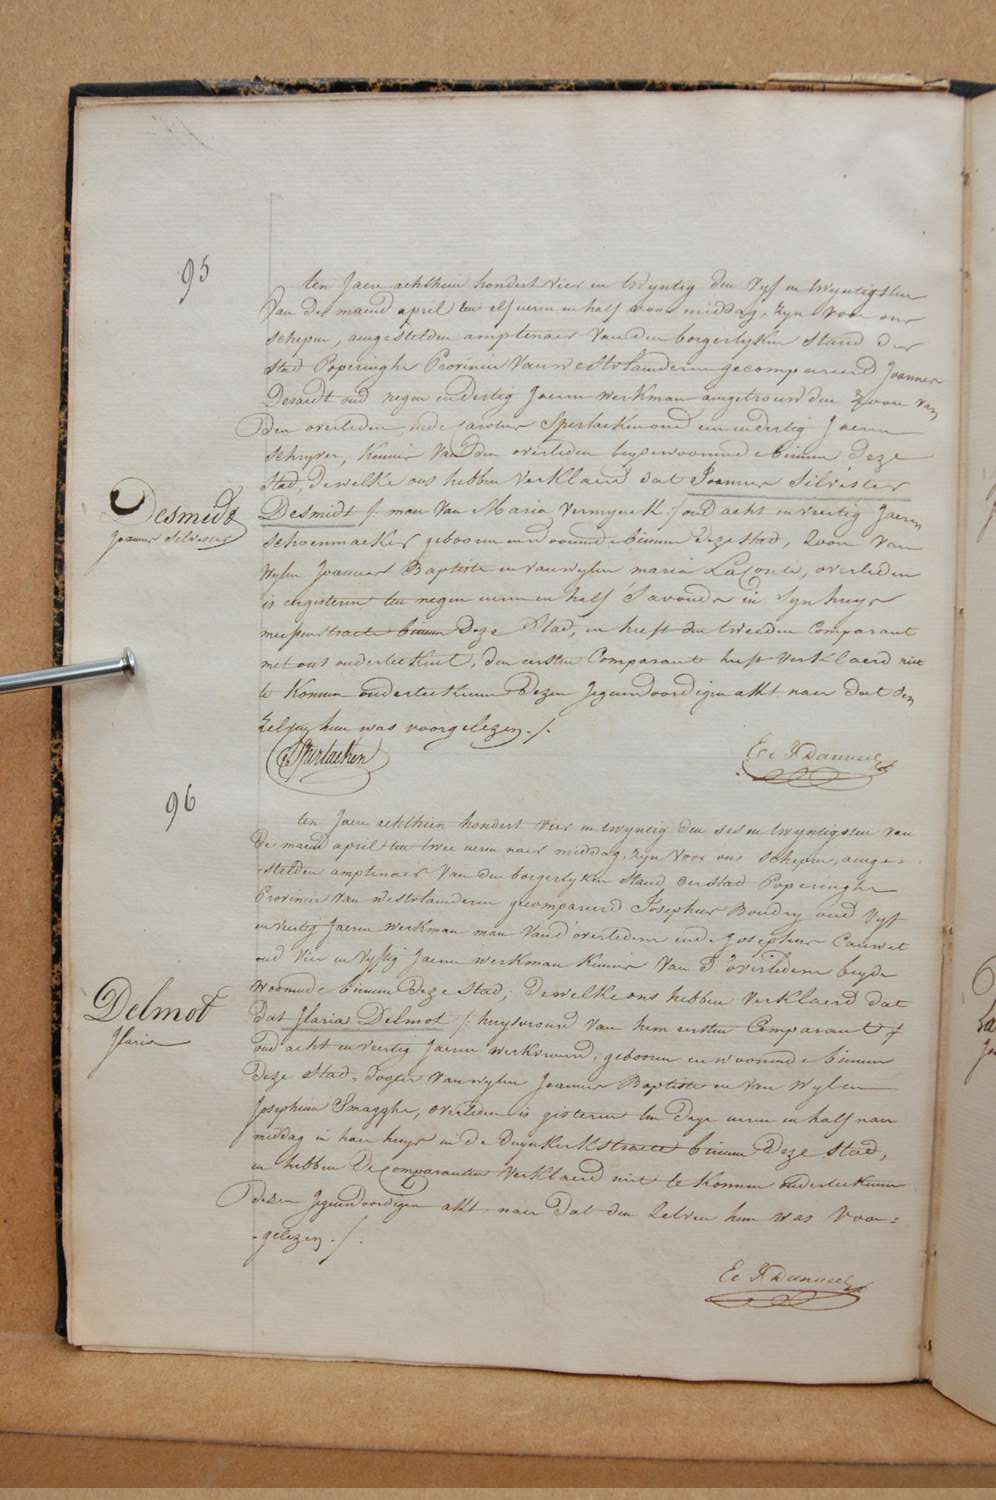 95
ten Jaere achthien hondert vier en twyntig den vyf en twyntigsten
van de maend april ten elf ueren en half voor middag, zyn voor ons
schepen, aengestelden amptenaer van den borgerlyken stand der
stad Poperinghe Provincie van westvlaenderen gecompareerd Joannes
Desaedt oud negen en dertig Jaeren werkman aengetrouwden zoon van
den overleden, ende Carolus Sperlaeken oud een en dertig Jaeren
schryver, kennis van den overleden beyde woonende binnen deze
stad, dewelke ons hebben verklaerd dat Joannes Silvester
Desmidt /: man van Maria Vermyeck :/ oud acht en veertig Jaeren
schoenmaeker geboren en woonende binnen deze stad, Zoon van
Wylen Joannes Baptiste en van wylen maria LaConte, overleden
is eergisteren ten negen ueren en half s'avonds in syn huys
meessenstraete binnen deze Stad, en heeft den tweeden Comparant
met ons onderteekent, den eersten Comparante heeft verklaerd niet
te konnen onderteekenen dezen Jegenwoordigen akt naer dat den
zelven hun was voorgelezen ./.
Desmidt
Joannes Silvester
C Sperlaeken
96
ten Jaere achthien hondert vier en twyntig den ses en twyntigsten van
de maend april ten twee ueren naer middag, zyn voor ons schepen, aenge=
=stelden amptenaer van den borgerlyken stand der stad Poperinghe
Provincie van westvlaenderen gecompareerd Josephus Boudry oud vyf
en veertig Jaeren werkman man van d'overledene ende Josephus Cauwet
oud vier en vyftig Jaeren werkman kennis van d'overledene beyde
woonende binnen deze stad, dewelke ons hebben verklaerd dat
dat Ilaria Delmot /: huysvrouw van hem eersten Comparant :/
oud acht en veertig Jaeren werkvrouw, geboren en woonende binnen
deze stad, Dogter van wylen Joannes Baptiste en van wylen
Josephine Smagghe, overleden is gisteren ten dryë ueren en half naer
middag in haer huys in de Duynkerkstraete binnen deze stad,
en hebben de comparanten verklaerd niet te konnen onderteekenen
dezen Jegenwoordigen akt naer dat den zelven hun was voor=
=gelezen ./.
Delmot
Ilaria